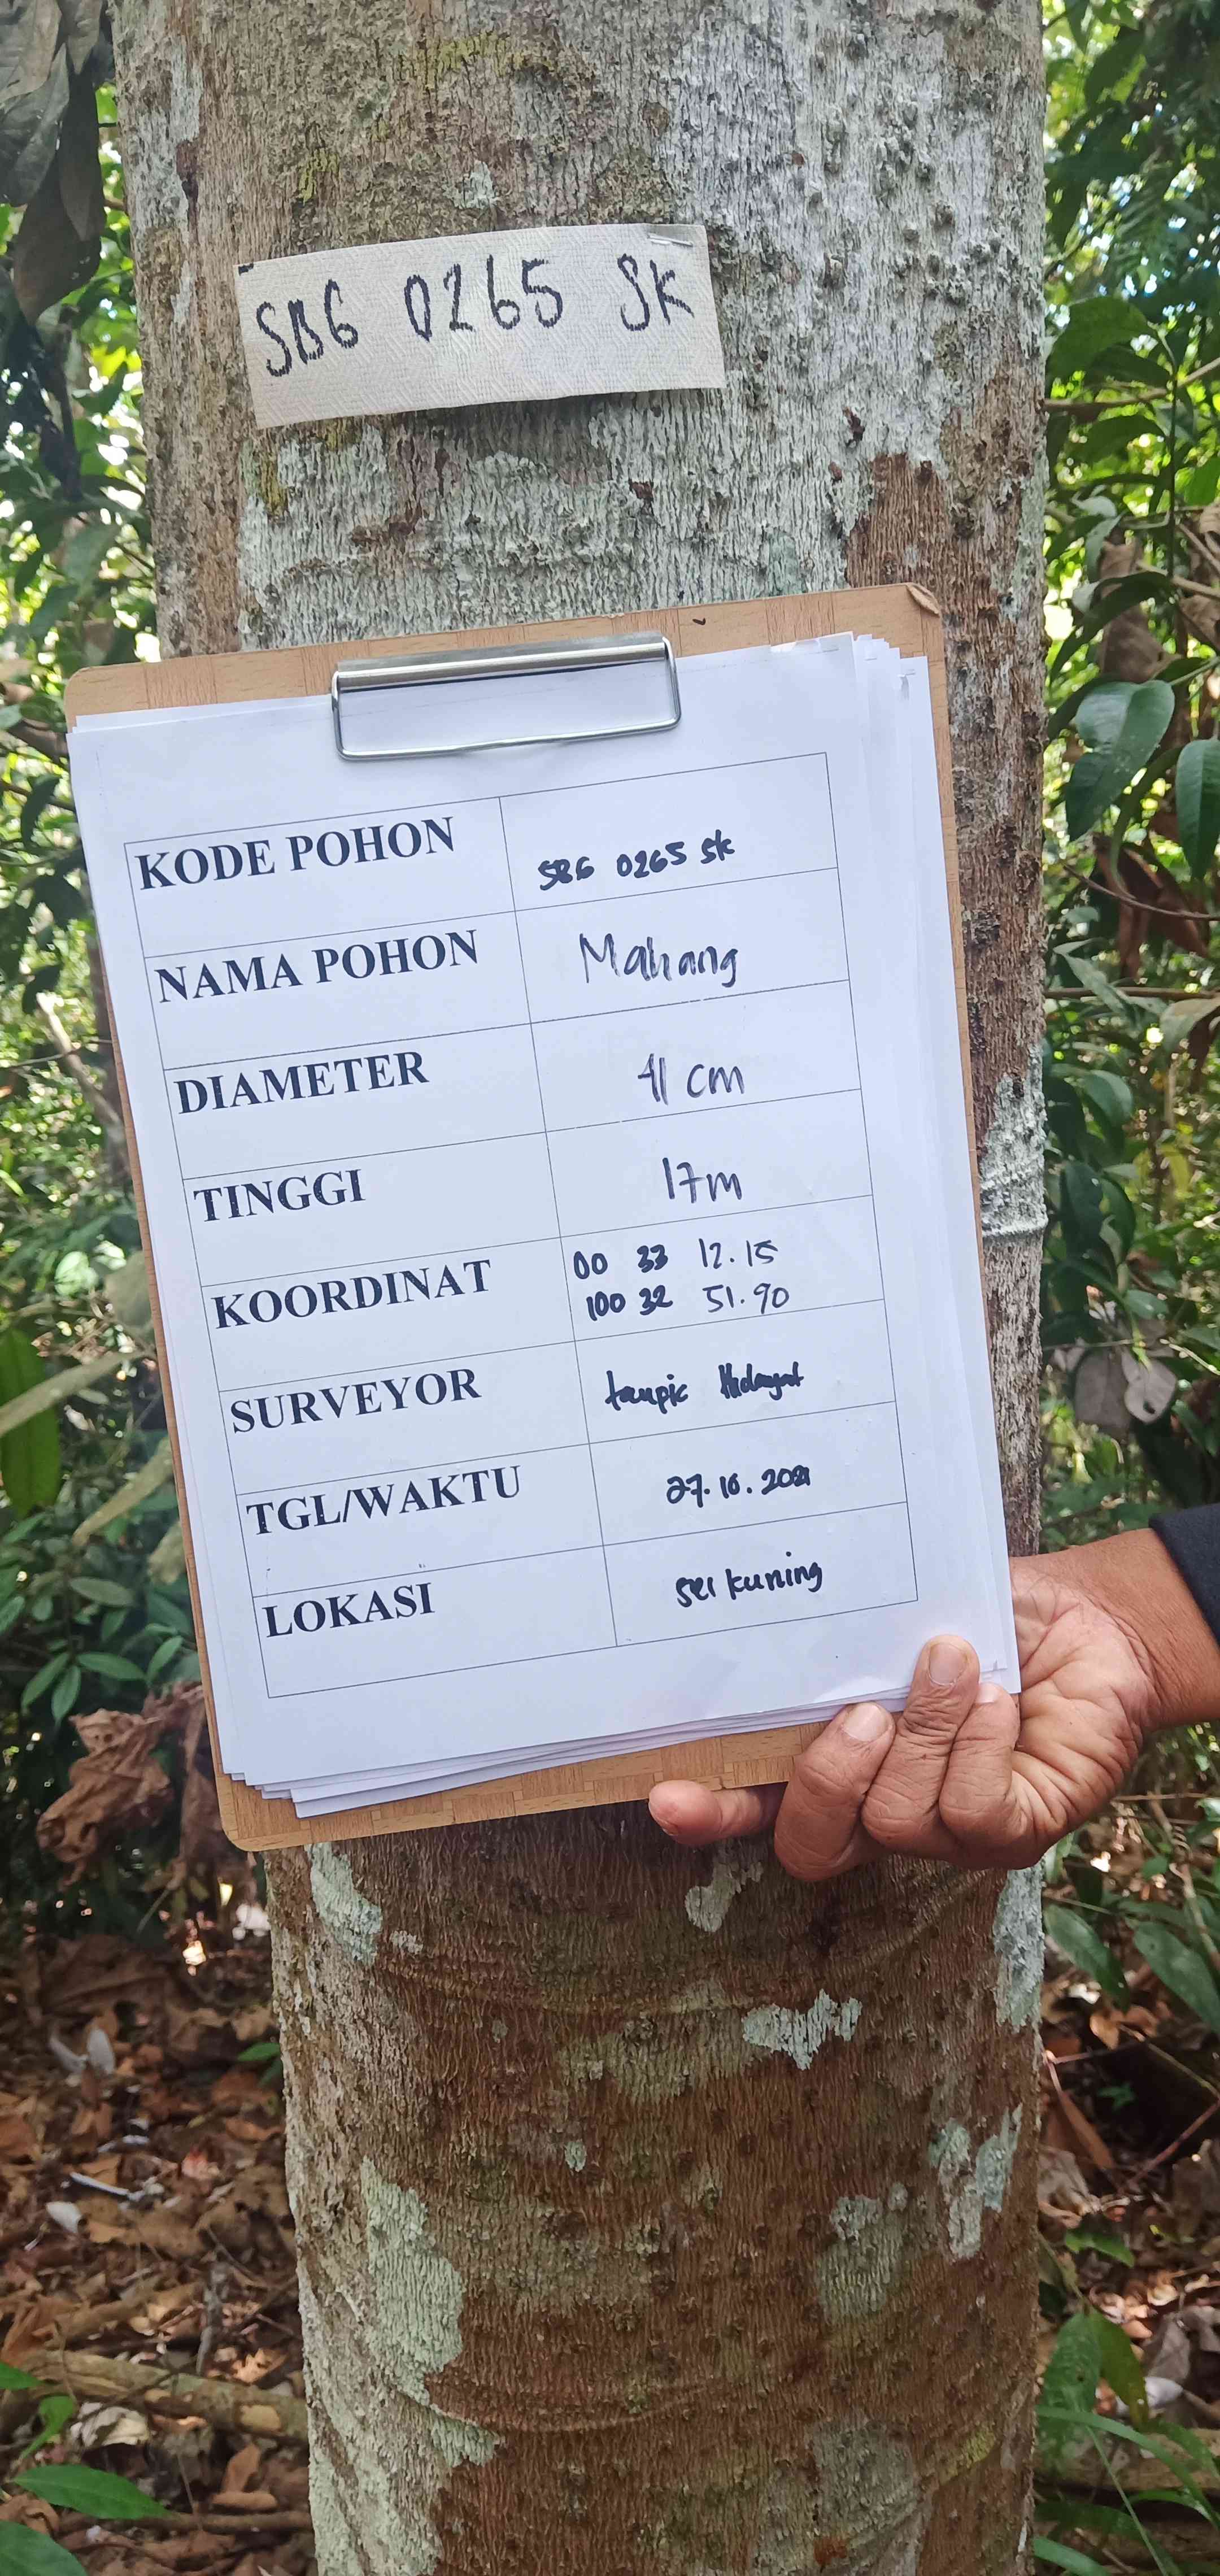 SBG 0265 SK
KODE POHON SBG 0265 SK
NAMA POHON Mahang
DIAMETER 41 cm
TINGGI 17m
KOORDINAT 00 33 12.15
100 32 51.90
SURVEYOR taupic Hidayat
TGL/WAKTU 27.10.2021
LOKASI sei kuning